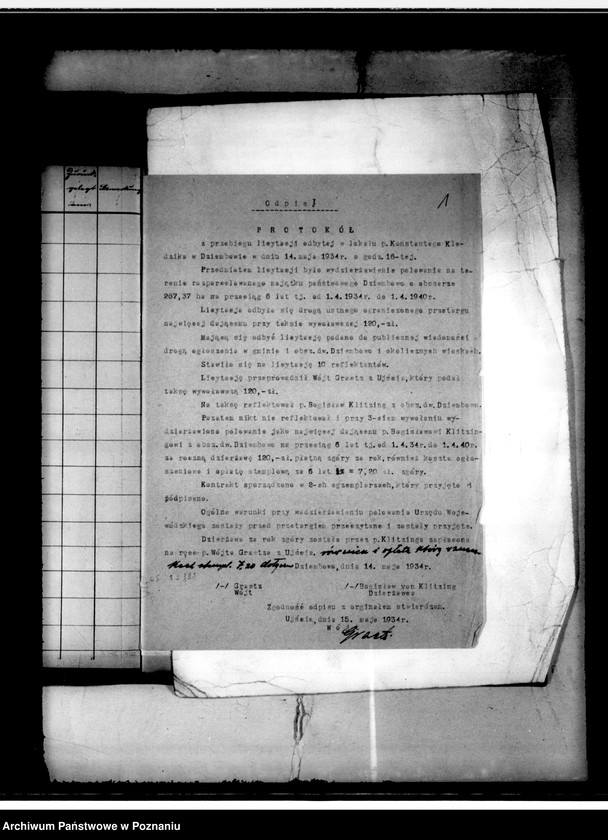 1
Odpis!
PROTOKÓŁ
z przebiegu licytacji odbytej w lokalu p.Konstantego Kle-
dzika w Dziembowie w dniu 14.maja 1934r. o godz.16-tej.
Przedmiotem licytacji było wydzierżawienie polowania na te-
renie rozparcelowanego majątku państwowego Dziembowo o obszarze
267,37 ha na przeciąg 6 lat tj. od 1.4.1934r. do 1.4.1940r.
Licytacja odbyła się drogą ustnego ograniczonego przetargu
najwięcej dającemu przy taksie wywoławczej 120,-zł.
Mającą się odbyć licytację podano do publicznej wiadomości
drogą ogłoszenia w gminie i obsz.dw.Dziembowo i okolicznych wioskach.
Stawiło się na licytację 10 reflektantów.
Licytację przeprowadził Wójt Graetz z Ujścia, który podał
taksę wywoławczą 120,-zł.
Na taksę reflektował p.Bogisław Klitzing z obsz.dw.Dziembowo.
Pozatem nikt nie reflektował i przy 3-ciem wywołaniu wy-
dzierżawiono polowanie jako najwięcej dającemu p.Bogisławowi Klitzin-
gowi z obsz.dw.Dziembowo na przeciąg 6 lat tj.od 1.4.34r.do 1.4.40r.
za roczną dzierżawę 120,-zł.płatną zgóry za rok,również koszta ogło-
szeniowe i opłatę stemplową za 6 lat = 7,20 zł. zgóry.
Kontrakt sporządzono w 2-ch egzemplarzach,który przyjęto i
podpisano.
Ogólne warunki przy wydzierżawieniu polowania Urzędu Woje-
wódzkiego zostały przed przetargiem przeczytane i zostały przyjęte.
Dzierżawa za rok zgóry została przez p.Klitzinga zapłacona
na ręce p.Wójta Graetza z Ujścia, również i opłata
stempl. 7,20 Dziembowo,dnia 14. maja 1934r.
/-/ Graetz /-/Bogisław von Klitzing
Wójt Dzierżawca
Zgodność odpisu z orginałem stwierdzam.
Ujście,dnia 15. maja 1934r.
Graetz
Archiwum Państwowe w Poznaniu